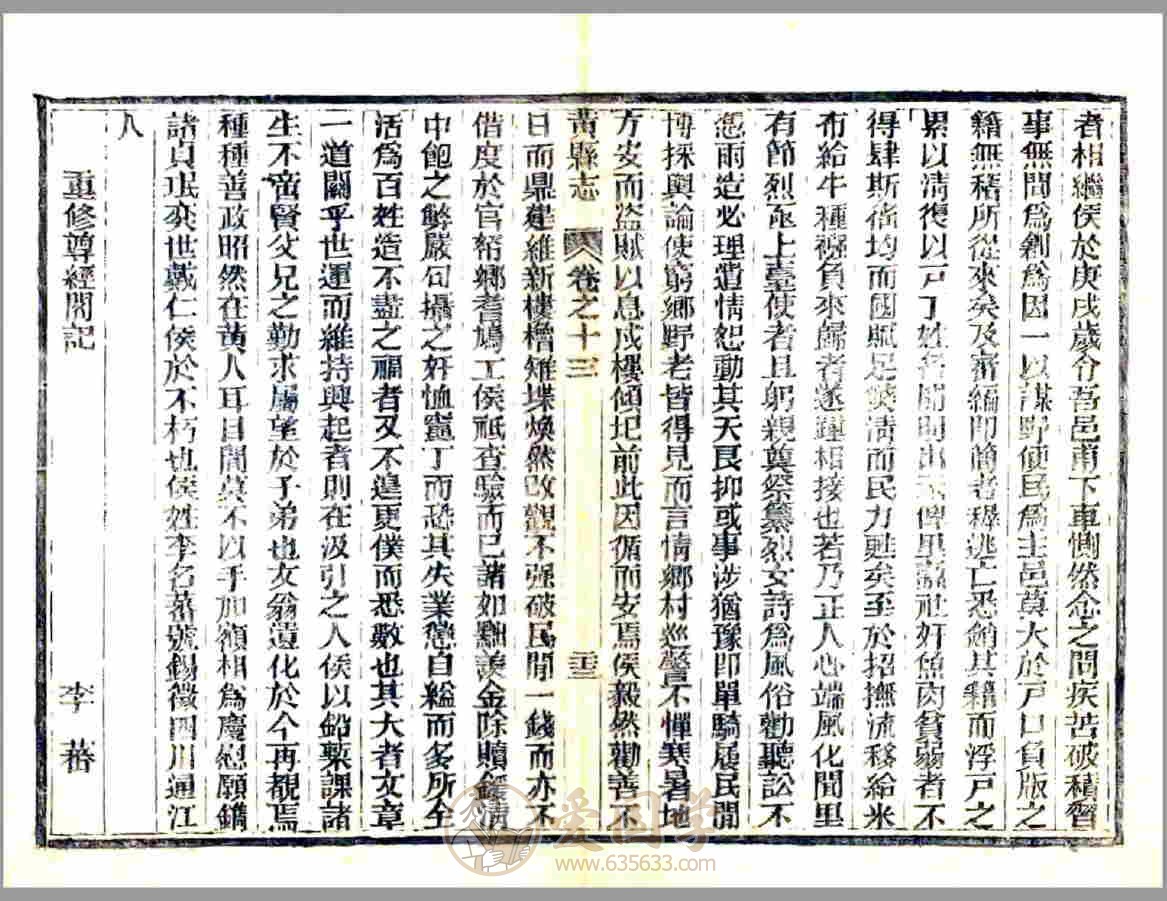 者相繼侯於庚戌歲令吾邑甫下車惻然念之問疾苦破積習
事無問爲創爲因一以謀野便民爲主邑莫大於戸口負版之
籍無稽所從來矣及審編即簡者稺逃亡悉銷其籍而浮戸之
累以清復以戸丁姓名開明出示俾里蠹社奸魚肉貧弱者不
得肆斯徭均而國賦足獘清而民力甦矣至於招撫流移給米
布給牛種襁負來歸者遂踵相接也若乃正人心端風化閭里
有節烈砸上臺使者且躬親奠祭纂烈女詩爲風俗勸聽訟不
怨雨造必理遣情恕動其天良抑或事涉猶豫即單騎履民間
博採輿論使窮鄉野老皆得見而言情鄉村巡警不憚寒暑地
方安而盜賊以息戍樓傾圮前此因循而安焉侯毅然勸善不
黃縣志 卷之十三 二十三
日而鼎建維新樓櫓雉堞煥然改觀不强破民間一錢而亦不
借度於官帑鄉耆鳩工侯祇查驗而已諸如黜羡金除贖鍰清
中飽之弊嚴勾攝之奸恤竈丁而恐其失業懲自縊而多所全
活爲百姓造不盡之福者又不遑更僕而悉數也其大者文章
一道關乎世運而維持興起者則在汲引之人侯以鉛槧課諸
生不啻賢父兄之勤求屬望於子弟也文翁遺化於今再覩焉
種種善政昭然在黃人耳目間莫不以手加額相爲慶慰願鐫
諸貞珉奕世戴仁侯於不朽也侯姓李名蕃號錫徵四川通江
人
重修尊經閣記 李蕃
爱国学
www.635633.com